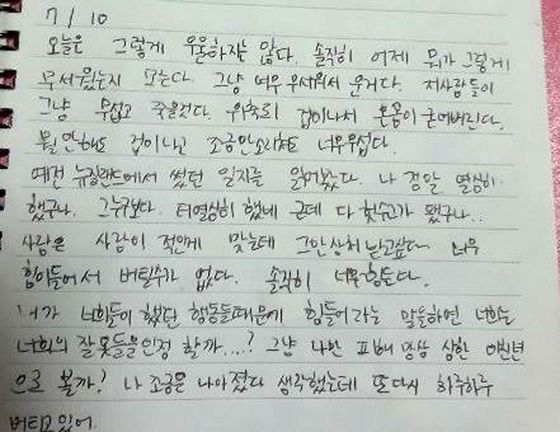 7 / 10
오늘은 그렇게 우울하지는 않다. 솔직히 어제 뭐가 그렇게
무서웠는지 모른다. 그냥 너무 무서워서 운거다. 저사람들이
그냥 무섭고 죽을것다. 위축되 겁이나서 온몸이 굳어버린다.
뭘 안해도 겁이나고 조금만소리쳐도 너무무섭다.
예전 뉴질랜드에서 썼던 일지를 읽어봤다. 나 정말 열심히
했구나. 그누구보다. 더열심히 했네 근데 다 헛수고가 됐구나..
사람은 사람이 적인게 맞는데 그만 상처 받고싶다 너무
힘이들어서 버틸수가 없다. 솔직히 너무힘든다.
내가 너희들이 했던 행동들때문에 힘들어라는 말을하면 너희는
너희의 잘못들을인정 할까....? 그냥 나만 피해망상 상한 미친년
으로 볼까? 나 조금은 나아졌다 생각했는데 또다시 하루하루
버티고있어.